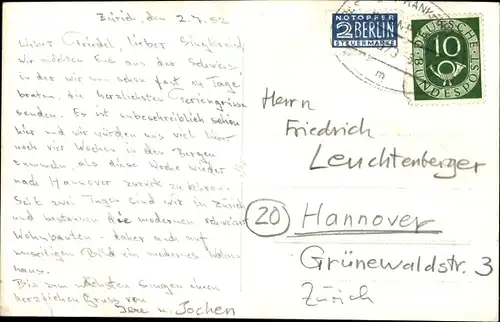 Zürich, den 2.7.52
Lieber Friedel, lieber Singkreis,
wir möchten Euch aus der Schweiz,
in der wir nun schon fast 10 Tage
braten, die herzlichsten Feriengrüsse
senden. Es ist unbeschreiblich schön
hier und wir würden uns viel lieber
noch vier Wochen in den Bergen
tummeln, als diese Woche wieder
nach Hannover zurück zu
Seit zwei Tagen sind wir in Zürich
und bestaunen die modernen schweizer
Wohnbauten - daher auch auf
umseitigem Bild ein modernes Wohn-
haus.
Bis zum nächsten Singen einen
herzlichen Gruss von
u. Jochen
NOTOPFER
2 BERLIN
STEUERMARKE
DEUTSCHE
10
BUNDESPOST
Herrn
Friedrich
Leuchtenberger
(20) Hannover
Grünewaldstr. 3
Zürich